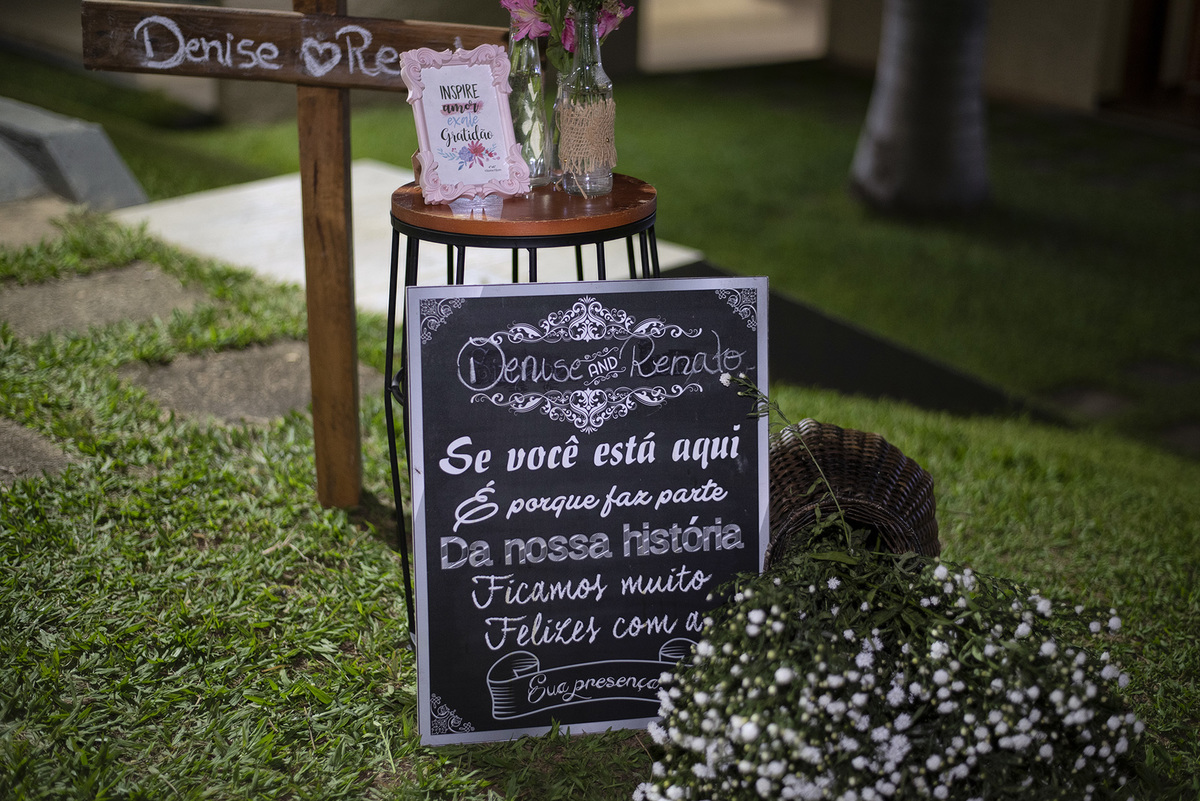 Denise ♡ Re
INSPIRE
amor
exale
Gratidão
Denise AND Renato
Se você está aqui
É porque faz parte
Da nossa história
Ficamos muito
Felizes com a
Sua presença